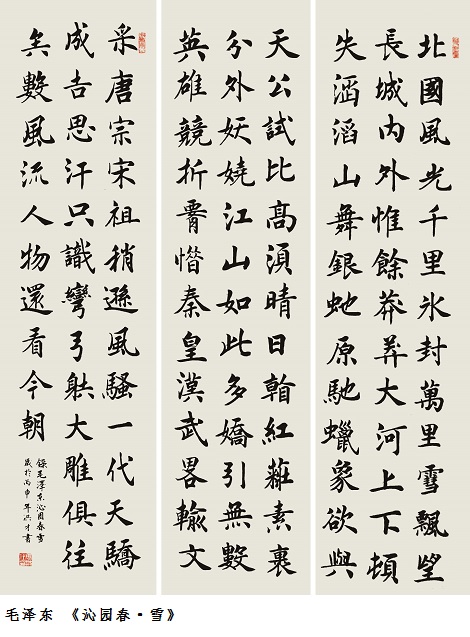 北國風光千里氷封萬里雪飄望
長城内外惟餘莽莽大河上下頓
失滔滔山舞銀虵原馳蠟象欲與
天公試比髙湏晴日看紅裝素裹
分外妖嬈江山如此多嬌引無數
英雄競折腰惜秦皇漢武畧輸文
采唐宗宋祖稍遜風騷一代天驕
成吉思汗只識彎弓射大雕俱往
矣數風流人物還看今朝
錄毛澤東沁園春雪
歲於丙申年洪才書
毛泽东 《沁园春·雪》